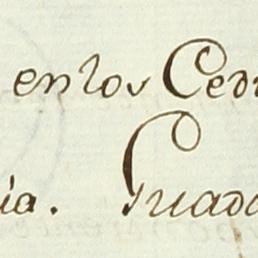 en los Ced
ia. Guada